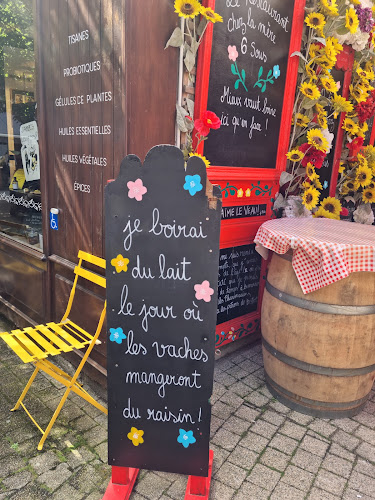 TISANES
PROBIOTIQUES
GÉLULES DE PLANTES
HUILES ESSENTIELLES
HUILES VÉGÉTALES
ÉPICES
Le Restaurant
chez la mère
6 sous
Mieux vaut boire
ici qu'en face!
J'AIME LE VEAU!
je boirai
du lait
le jour où
les vaches
mangeront
du raisin !